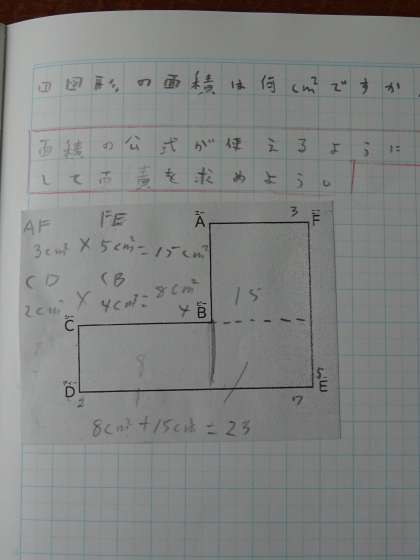 の面積は何cm²ですか。
面積の公式が使えるように
して面積を求めよう。
AF FE
3cm² × 5cm² = 15cm²
CD CB
2cm² × 4cm² = 8cm²
A 3 F
15
4 B
C
8
D 2 7 5 E
8cm² + 15cm² = 23